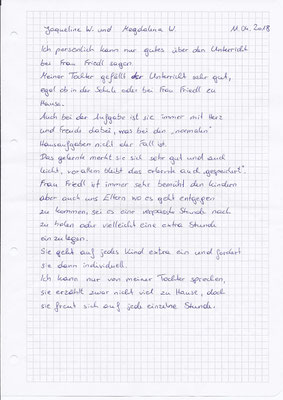 Jaqueline W. und Magdalena W. 11.04.2018
Ich persönlich kann nur gutes über den Unterricht
bei Frau Friedl sagen.
Meiner Tochter gefällt der Unterricht sehr gut,
egal ob in der Schule oder bei Frau Friedl zu
Hause.
Auch bei der Aufgabe ist sie immer mit Herz
und Freude dabei, was bei den "normalen"
Hausaufgaben nicht der Fall ist.
Das gelernte merkt sie sich sehr gut und auch
leicht, vor allem bleibt das erlernte auch "gespeichert".
Frau Friedl ist immer sehr bemüht den Kindern
aber auch uns Eltern wo es geht entgegen
zu kommen, sei es eine verpasste Stunde nach
zu holen oder vielleicht eine extra Stunde
ein zu legen.
Sie geht auf jedes Kind extra ein und fördert
sie dann individuell.
Ich kann nur von meiner Tochter sprechen,
sie erzählt zwar nicht viel zu Hause, doch
sie freut sich auf jede einzelne Stunde.